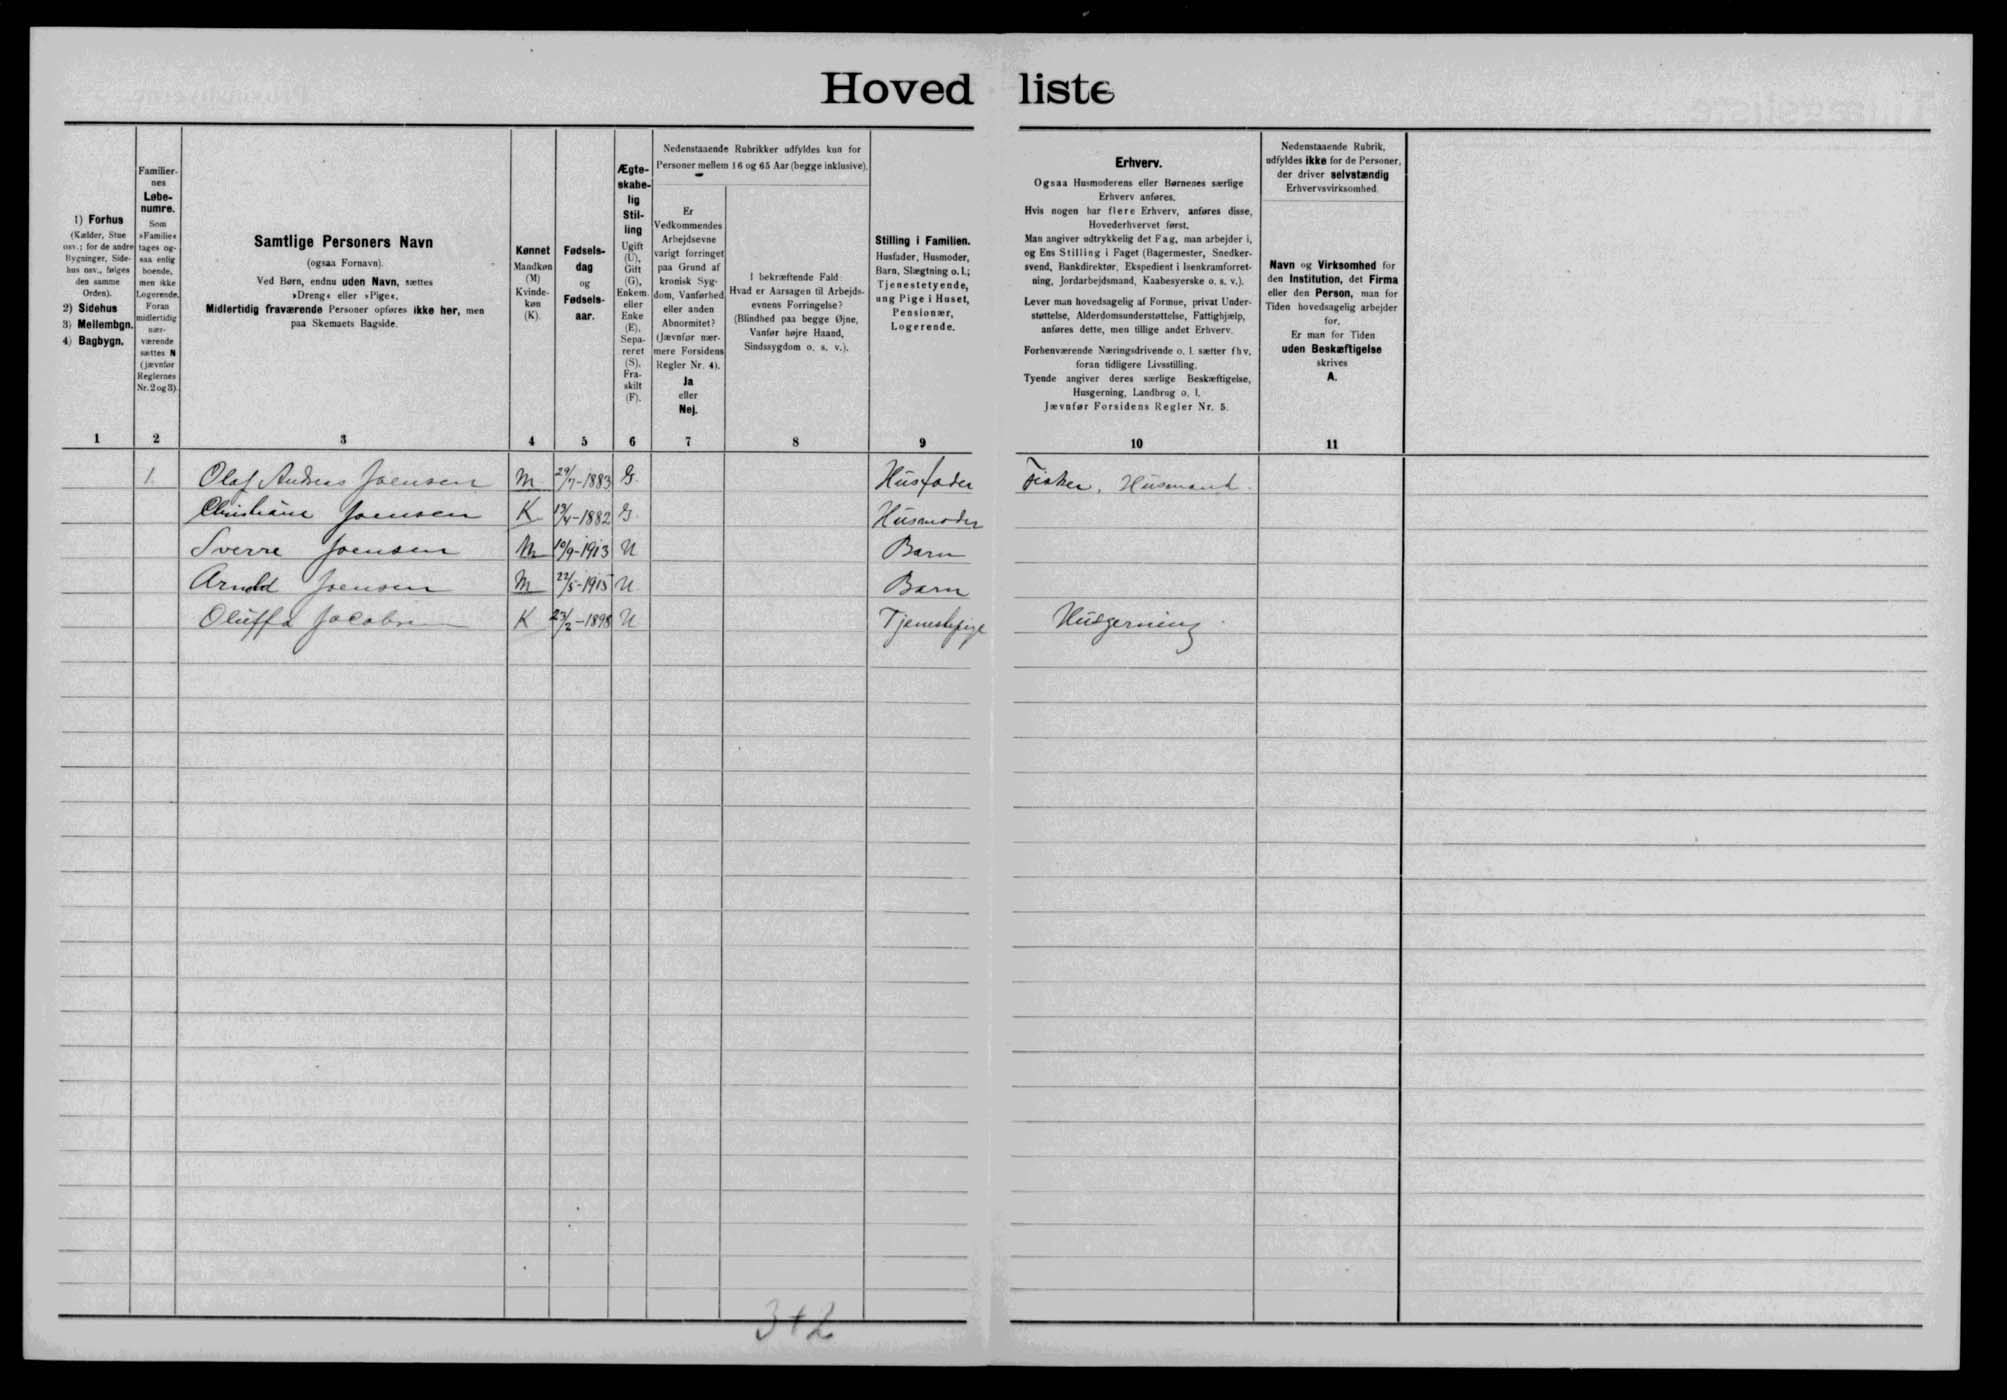 Hovedliste
1) Forhus
(Kælder, Stue
osv.; for de andre
Bygninger, Side-
hus osv., følges
den samme
Orden).
2) Sidehus
3) Mellembgn.
4) Bagbygn.
Familier-
nes
Løbe-
numre.
Som
»Familie«
tages og-
saa enlig
boende,
men ikke
Logerende.
Foran
midlertidig
nær-
værende
sættes N
(jævnfør
Reglernes
Nr. 2 og 3).
Samtlige Personers Navn
(ogsaa Fornavn).
Ved Børn, endnu uden Navn, sættes
»Dreng« eller »Pige«.
Midlertidig fraværende Personer opføres ikke her, men
paa Skemaets Bagside.
Kønnet
Mandkøn
(M)
Kvinde-
køn
(K).
Fødsels-
dag
og
Fødsels-
aar.
Ægte-
skabe-
lig
Stil-
ling
Ugift
(U),
Gift
(G),
Enkem.
eller
Enke
(E),
Sepa-
reret
(S),
Fra-
skilt
(F).
Nedenstaaende Rubrikker udfyldes kun for
Personer mellem 16 og 65 Aar (begge inklusive).
Er
Vedkommendes
Arbejdsevne
varigt forringet
paa Grund af
kronisk Syg-
dom, Vanførhed
eller anden
Abnormitet?
(Jævnfør nær-
mere Forsidens
Regler Nr. 4).
Ja
eller
Nej.
I bekræftende Fald:
Hvad er Aarsagen til Arbejds-
evnens Forringelse?
(Blindhed paa begge Øjne,
Vanfør højre Haand,
Sindssygdom o. s. v.).
Stilling i Familien.
Husfader, Husmoder,
Barn, Slægtning o. l.;
Tjenestetyende,
ung Pige i Huset,
Pensionær,
Logerende.
Erhverv.
Ogsaa Husmoderens eller Børnenes særlige
Erhverv anføres.
Hvis nogen har flere Erhverv, anføres disse,
Hovederhvervet først.
Man angiver udtrykkelig det Fag, man arbejder i,
og Ens Stilling i Faget (Bagermester, Snedker-
svend, Bankdirektør, Ekspedient i Isenkramforret-
ning, Jordarbejdsmand, Kaabesyerske o. s. v.).
Lever man hovedsagelig af Formue, privat Under-
støttelse, Alderdomsunderstøttelse, Fattighjælp,
anføres dette, men tillige andet Erhverv.
Forhenværende Næringsdrivende o. l. sætter fhv.
foran tidligere Livsstilling.
Tyende angiver deres særlige Beskæftigelse,
Husgerning, Landbrug o. l.
Jævnfør Forsidens Regler Nr. 5.
Nedenstaaende Rubrik,
udfyldes ikke for de Personer,
der driver selvstændig
Erhvervsvirksomhed.
Navn og Virksomhed for
den Institution, det Firma
eller den Person, man for
Tiden hovedsagelig arbejder
for.
Er man for Tiden
uden Beskæftigelse
skrives
A.
1 2 3 4 5 6 7 8 9 10 11
1. Olaf Andreas Joensen M 29/7-1883 G. Husfader Fisker, Husmand.
Christiane Joensen K 13/4-1882 G. Husmoder
Sverre Joensen M 10/9-1913 U Barn
Arnold Joensen M 22/5-1915 U Barn
Oluffa Jacobsen K 23/2-1898 U Tjenestepige Husgerning
3+2